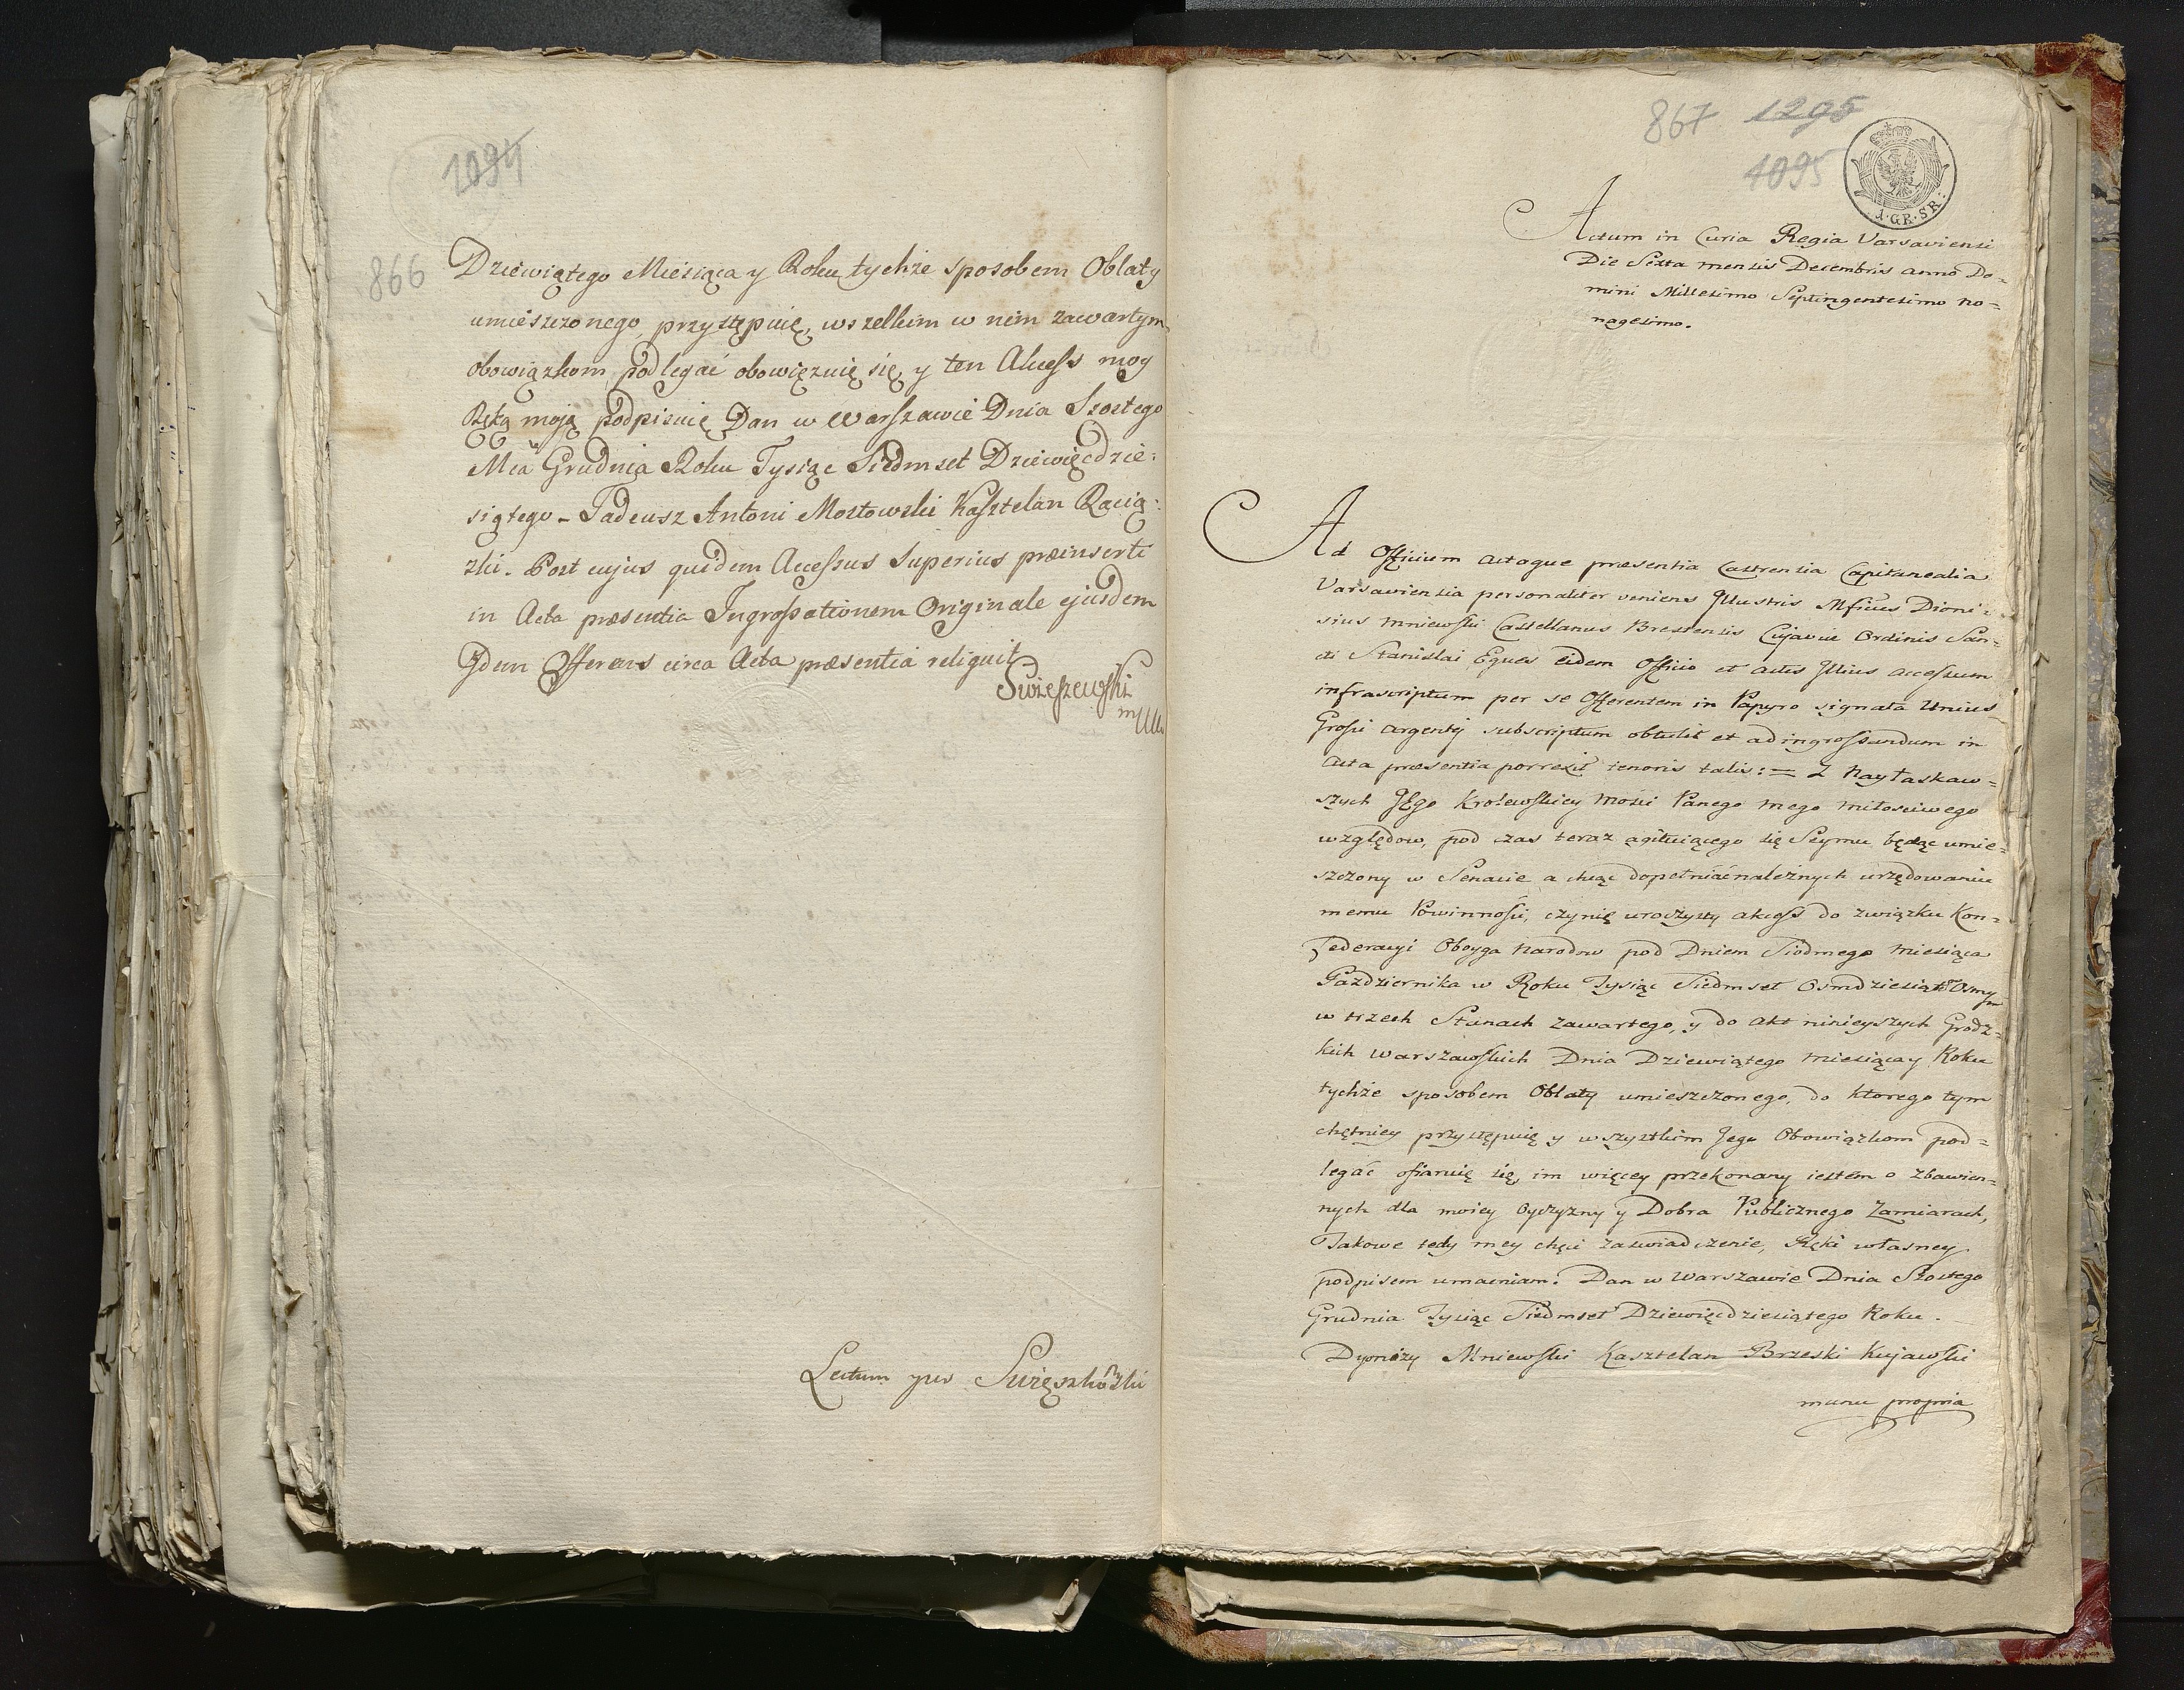 1094
866
Dziewiątego Miesiąca y Roku tychże sposobem Oblaty
umieszczonego przystępuię, wszelkim w nim zawartym
obowiązkom podlegać obowięzuię się, y ten Akceſs moy
Ręką moją podpisuię Dan w Warſzawie Dnia Szostego
Mca Grudnia Roku Tysiąc Siedmset Dziewięcdzie:
siątego - Tadeusz Antoni Mostowski Kaſztelan Racią:
zki. Post cujus quidem Acceſsus Superius præinserti
in Acta præsentia Ingroſsationem Originale ejusdem
Idem Offerens circa Acta præsentia reliquit
Swieſzewſki
mpp
Lectum per
867 1295
1095
A·GR·SR·
Actum in Curia Regia Varsaviensi
Die Sexta mensis Decembris anno Do=
mini Millesimo Septingentesimo no=
nagesimo.
Ad Officium actaque præsentia Castrensia Capitanealia
Varsaviensia personaliter veniens Illustris Mficus Dioni=
sius Mniewſki Castellanus Brestensis Cujaviæ Ordinis San=
cti Stanislai Eques eidem Officio et actis Illius acceſsum
infrascriptum per se Offerentem in Papyro signata Unius
Groſsi argentij subscriptum obtulit et ad ingroſsandum in
Acta præsentia porrexit tenoris talis: = Z Nayłaskaw=
szych JEgo Krolewſkiey Mości Panego mego miłosciwego
względow, pod czas teraz agituiącego się Seymu będąc umie=
szczony w Senacie a chcąc dopełniać należnych urzędowaniu
memu Powinnoſci, czynię uroczysty akceſs do związku Kon=
federacyi Oboyga Narodow pod Dniem Siódmego Miesiąca
Pazdziernika w Roku Tysiąc Siedmset Osmdziesiątᵒ Osmym
w trzech Stanach zawartego, y do Akt ninieyszych Grodz=
kich Warszawſkich Dnia Dziewiątego Miesiąca y Roku
tychże sposobem Oblaty umieszczonego, do ktorego tym
chętniey przystępuię y wszystkim Jego Obowiązkom pod=
legać ofiaruię się, im więcey przekonany iestem o zbawien=
nych dla moiey Oyczyzny y Dobra Publicznego Zamiarach,
Takowe tedy mey chęci zaswiadczenie, Ręki własney
podpisem umacniam. Dan w Warszawie Dnia Szostego
Grudnia Tysiąc Siedmset Dziewięcdziesiątego Roku.
Dyonizy Mniewſki Kasztelan Brzeski Kujawſki
manu propria